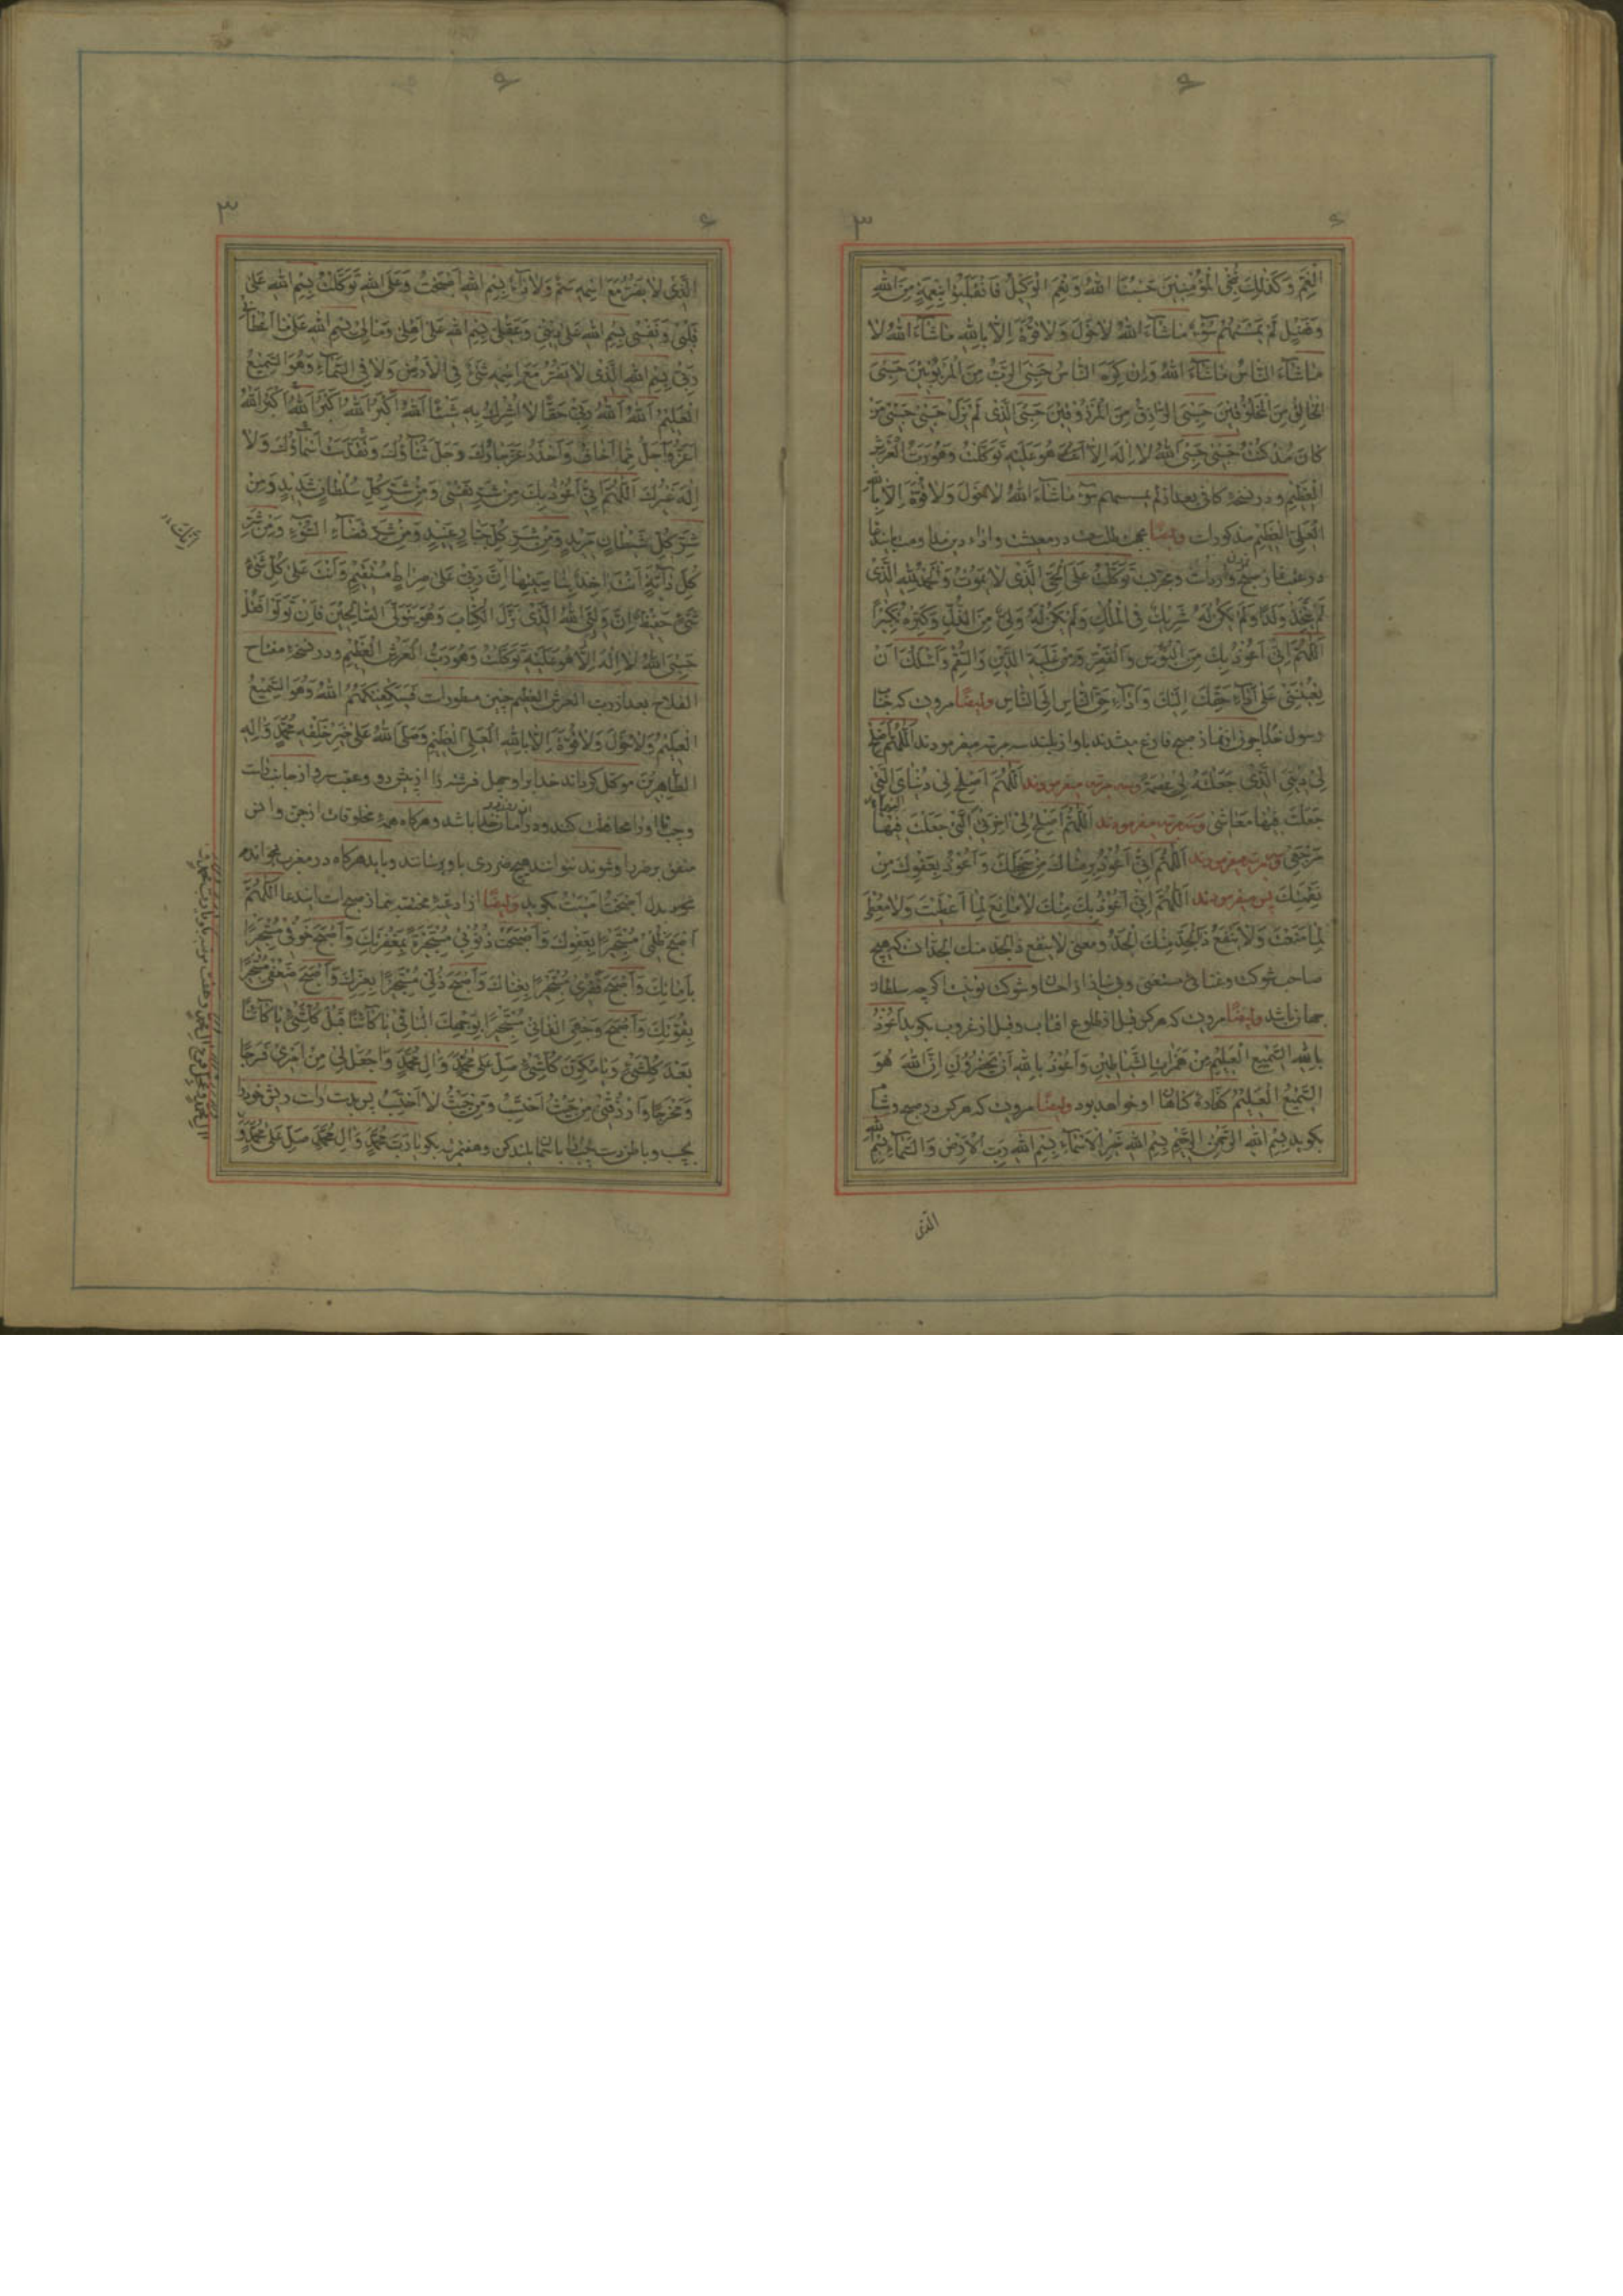 الْغَمِّ وَكَذٰلِكَ نُنْجِي الْمُؤْمِنِينَ حَسْبُنَا اللهُ وَنِعْمَ الْوَكِيلُ فَانْقَلَبُوا بِنِعْمَةٍ مِنَ اللهِ
وَفَضْلٍ لَمْ يَمْسَسْهُمْ سُوءٌ مَاشَآءَ اللهُ لَاحَوْلَ وَلَا قُوَّةَ اِلَّا بِاللهِ مَاشَآءَ اللهُ لَا
مَاشَآءَ النَّاسُ مَاشَآءَ اللهُ وَاِنْ كَرِهَ النَّاسُ حَسْبِيَ الرَّبُّ مِنَ الْمَرْبُوبِينَ حَسْبِيَ
الْخَالِقُ مِنَ الْمَخْلُوقِينَ حَسْبِيَ الرَّازِقُ مِنَ الْمَرْزُوقِينَ حَسْبِيَ الَّذِي لَمْ يَزَلْ حَسْبِي حَسْبِي مَنْ
كَانَ مُذْ كُنْتُ حَسْبِي حَسْبِيَ اللهُ لَا اِلٰهَ اِلَّا هُوَ عَلَيْهِ تَوَكَّلْتُ وَهُوَ رَبُّ الْعَرْشِ
الْعَظِيمِ و در نسخه كافى بعد از لم يمسسهم سوء مَاشَآءَ اللهُ لَا حَوْلَ وَلَا قُوَّةَ اِلَّا بِاللهِ
الْعَلِيِّ الْعَظِيمِ مذكور است وايضًا بجهت در معيشت واداء دين
در عقب نماز صبح وارد است ومجرب تَوَكَّلْتُ عَلَى الْحَيِّ الَّذِي لَا يَمُوتُ وَالْحَمْدُ لِلّٰهِ الَّذِي
لَمْ يَتَّخِذْ وَلَدًا وَلَمْ يَكُنْ لَهُ شَرِيكٌ فِي الْمُلْكِ وَلَمْ يَكُنْ لَهُ وَلِيٌّ مِنَ الذُّلِّ وَكَبِّرْهُ تَكْبِيرًا
اَللّٰهُمَّ اِنِّي اَعُوذُ بِكَ مِنَ الْبُؤْسِ وَالْفَقْرِ وَمِنْ غَلَبَةِ الدَّيْنِ وَالسُّقْمِ وَاَسْئَلُكَ اَنْ
تُعِينَنِي عَلٰى اَدَآءِ حَقِّكَ اِلَيْكَ وَاَدَآءِ حَقِّ النَّاسِ اِلَى النَّاسِ وايضًا مرويست كه جناب
رسول خدا چون از نماز صبح فارغ ميشدند باواز بلند سه مرتبه ميفرمودند اَللّٰهُمَّ اَصْلِحْ
لِي دِينِيَ الَّذِي جَعَلْتَهُ لِي عِصْمَةً وسه مرتبه ميفرمودند اَللّٰهُمَّ اَصْلِحْ لِي دُنْيَايَ الَّتِي
جَعَلْتَ فِيهَا مَعَاشِي وسه مرتبه ميفرمودند اَللّٰهُمَّ اَصْلِحْ لِي اٰخِرَتِي الَّتِي جَعَلْتَ
مَرْجِعِي ميفرمودند اَللّٰهُمَّ اِنِّي اَعُوذُ بِرِضَاكَ مِنْ سَخَطِكَ وَاَعُوذُ بِعَفْوِكَ مِنْ
نَقِمَتِكَ پس ميفرمودند اَللّٰهُمَّ اِنِّي اَعُوذُ بِكَ مِنْكَ لَا مَانِعَ لِمَا اَعْطَيْتَ وَلَا مُعْطِيَ
لِمَا مَنَعْتَ وَلَا يَنْفَعُ ذَا الْجَدِّ مِنْكَ الْجَدُّ ومعنى لا ينفع ذا الجد منك الجد انست كه هيچ
صاحب شوكت وغنائى مستغنى وبى نياز از احسان وشوكت تو نيست اگرچه سلطان
جهان باشد وايضًا مرويست كه هر كس قبل از طلوع افتاب وقبل از غروب بگويد اَعُوذُ
بِاللهِ السَّمِيعِ الْعَلِيمِ مِنْ هَمَزَاتِ الشَّيَاطِينِ وَاَعُوذُ بِاللهِ اَنْ يَحْضُرُونِ اِنَّ اللهَ هُوَ
السَّمِيعُ الْعَلِيمُ كفاره گناهان او خواهد بود وايضًا مرويست كه هر كس در صبح وشام
بگويد بِسْمِ اللهِ الرَّحْمٰنِ الرَّحِيمِ بِسْمِ اللهِ خَيْرِ الْاَسْمَآءِ بِسْمِ اللهِ رَبِّ الْاَرْضِ وَالسَّمَآءِ بِسْمِ اللهِ
الَّذِي
الَّذِي لَا يَضُرُّ مَعَ اسْمِهِ سَمٌّ وَلَا دَآءٌ بِسْمِ اللهِ اَصْبَحْتُ وَعَلَى اللهِ تَوَكَّلْتُ بِسْمِ اللهِ عَلٰى
قَلْبِي وَنَفْسِي بِسْمِ اللهِ عَلٰى دِينِي وَعَقْلِي بِسْمِ اللهِ عَلٰى اَهْلِي وَمَالِي بِسْمِ اللهِ عَلٰى مَا اَعْطَانِي
رَبِّي بِسْمِ اللهِ الَّذِي لَا يَضُرُّ مَعَ اسْمِهِ شَيْءٌ فِي الْاَرْضِ وَلَا فِي السَّمَآءِ وَهُوَ السَّمِيعُ
الْعَلِيمُ اَللهُ اَللهُ رَبِّي حَقًّا لَا اُشْرِكُ بِهِ شَيْئًا اَللهُ اَكْبَرُ اَللهُ اَكْبَرُ اَللهُ اَكْبَرُ اَللهُ
اَعَزُّ وَاَجَلُّ مِمَّا اَخَافُ وَاَحْذَرُ عَزَّ جَارُكَ وَجَلَّ ثَنَآؤُكَ وَتَقَدَّسَتْ اَسْمَآؤُكَ وَلَا
اِلٰهَ غَيْرُكَ اَللّٰهُمَّ اِنِّي اَعُوذُ بِكَ مِنْ شَرِّ نَفْسِي وَمِنْ شَرِّ كُلِّ سُلْطَانٍ شَدِيدٍ وَمِنْ
شَرِّ كُلِّ شَيْطَانٍ مَرِيدٍ وَمِنْ شَرِّ كُلِّ جَبَّارٍ عَنِيدٍ وَمِنْ شَرِّ قَضَآءِ السُّوءِ وَمِنْ شَرِّ
كُلِّ دَآبَّةٍ اَنْتَ اٰخِذٌ بِنَاصِيَتِهَا اِنَّ رَبِّي عَلٰى صِرَاطٍ مُسْتَقِيمٍ وَاَنْتَ عَلٰى كُلِّ شَيْءٍ
شَيْءٍ حَفِيظٌ اِنَّ وَلِيِّيَ اللهُ الَّذِي نَزَّلَ الْكِتَابَ وَهُوَ يَتَوَلَّى الصَّالِحِينَ فَاِنْ تَوَلَّوْا فَقُلْ
حَسْبِيَ اللهُ لَا اِلٰهَ اِلَّا هُوَ عَلَيْهِ تَوَكَّلْتُ وَهُوَ رَبُّ الْعَرْشِ الْعَظِيمِ و در نسخه مفتاح
الفلاح بعد از رب العرش العظيم چنين مسطور است فَسَيَكْفِيكَهُمُ اللهُ وَهُوَ السَّمِيعُ
الْعَلِيمُ وَلَا حَوْلَ وَلَا قُوَّةَ اِلَّا بِاللهِ الْعَلِيِّ الْعَظِيمِ وَصَلَّى اللهُ عَلٰى خَيْرِ خَلْقِهِ مُحَمَّدٍ وَاٰلِهِ
الطَّاهِرِينَ موكل گرداند خدا بر او چهل فرشته را از پيش رو وعقب سر واز جانب راست
وچپ تا او را محافظت كنند و در امان خدا باشد وهرگاه همه مخلوقات از جن وانس
متفق بر ضرر او شوند نتوانند هيچ ضررى باو برسانند وبايد هرگاه در مغرب بخواند
بدل اَصْبَحْتُ اَمْسَيْتُ بگويد وايضًا از ادعيه مختصه نماز صبح است ايندعا اَللّٰهُمَّ
اَصْبَحَ ظُلْمِي مُسْتَجِيرًا بِعَفْوِكَ وَاَصْبَحَتْ ذُنُوبِي مُسْتَجِيرَةً بِمَغْفِرَتِكَ وَاَصْبَحَ خَوْفِي مُسْتَجِيرًا
بِاَمَانِكَ وَاَصْبَحَ فَقْرِي مُسْتَجِيرًا بِغِنَاكَ وَاَصْبَحَ ذُلِّي مُسْتَجِيرًا بِعِزِّكَ وَاَصْبَحَ ضَعْفِي مُسْتَجِيرًا
بِقُوَّتِكَ وَاَصْبَحَ وَجْهِيَ الْفَانِي مُسْتَجِيرًا بِوَجْهِكَ الْبَاقِي يَا كَآئِنًا قَبْلَ كُلِّ شَيْءٍ يَا كَآئِنًا
بَعْدَ كُلِّ شَيْءٍ وَيَا مُكَوِّنَ كُلِّ شَيْءٍ صَلِّ عَلٰى مُحَمَّدٍ وَاٰلِ مُحَمَّدٍ وَاجْعَلْ لِي مِنْ اَمْرِي فَرَجًا
وَمَخْرَجًا وَارْزُقْنِي مِنْ حَيْثُ اَحْتَسِبُ وَمِنْ حَيْثُ لَا اَحْتَسِبُ پس بدست راست ريش خود را
بگير وباطن دست چپ را باسمان بلند كن وهفتمرتبه بگو يَا رَبَّ مُحَمَّدٍ وَاٰلِ مُحَمَّدٍ صَلِّ عَلٰى مُحَمَّدٍ وَ